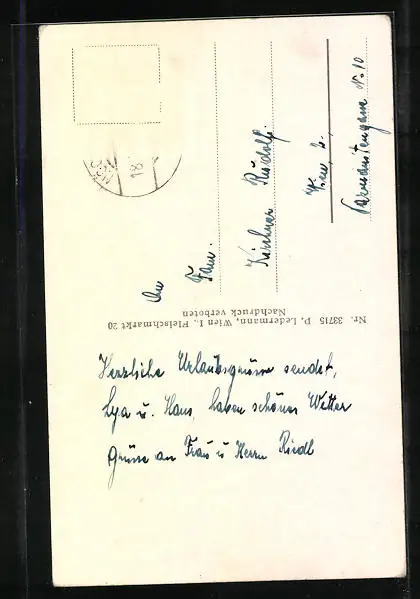 An
Fam.
Kirchner Rudolf
Wien 2.
Karmelitengasse № 10
Nr. 33715 P. Ledermann, Wien I., Fleischmarkt 20
Nachdruck verboten
Herzliche Urlaubsgrüsse sendet,
Lya u. Hans, haben schönes Wetter
Grüsse an Frau u Herrn Riedl